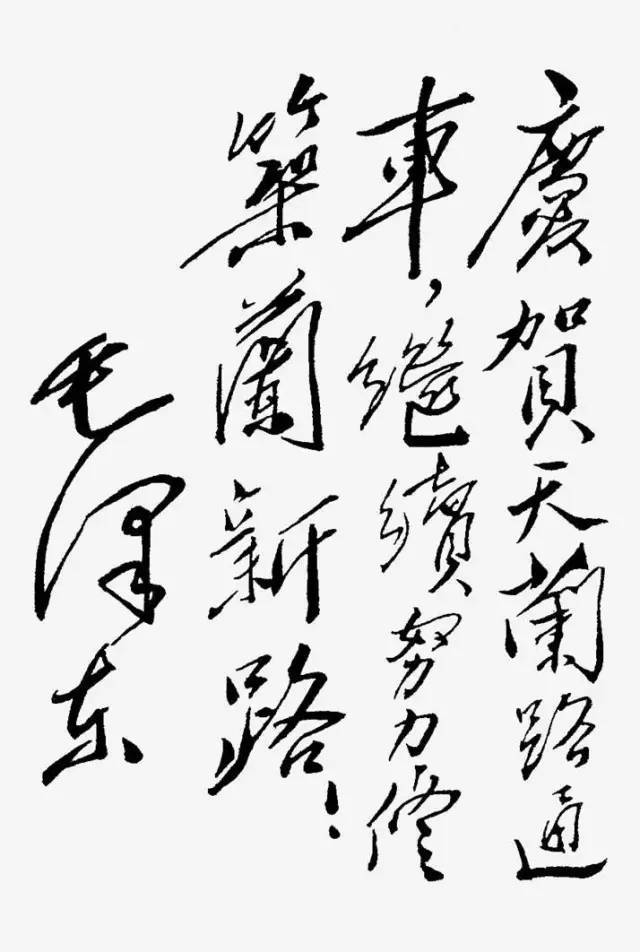 慶賀天蘭路通
車，繼續努力修
築蘭新路！
毛澤东